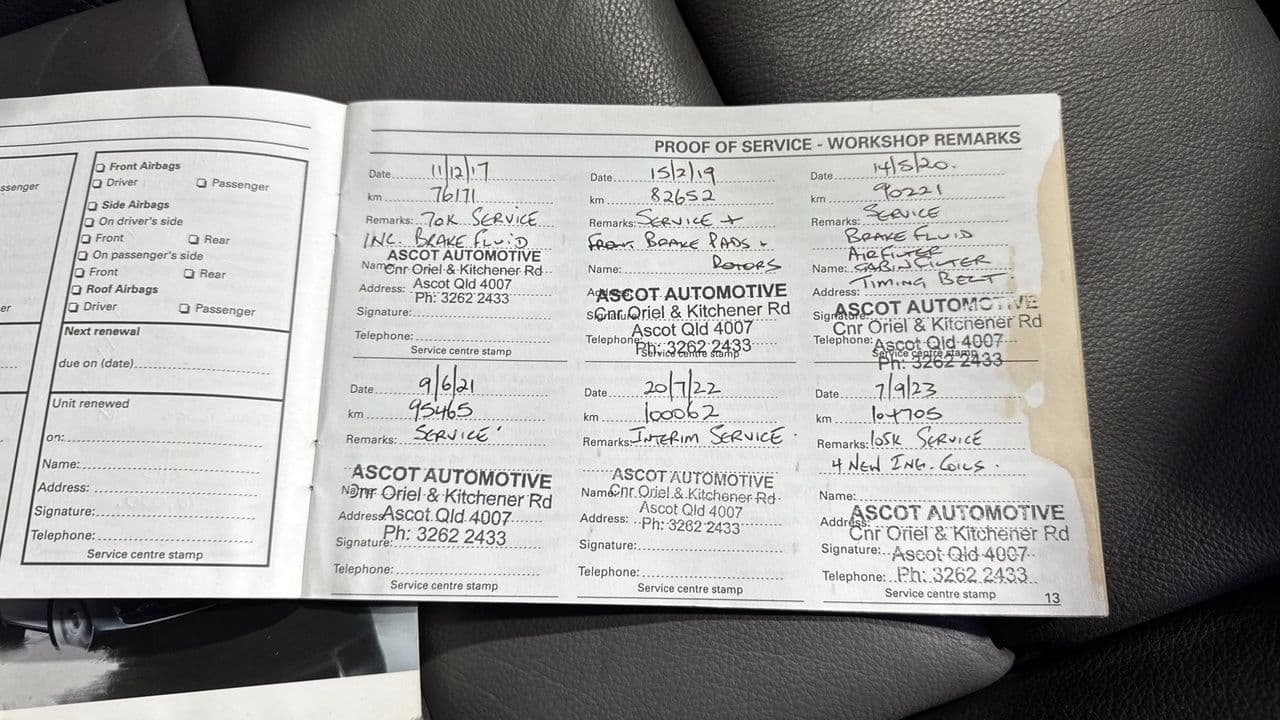 ssenger
er
Front Airbags
Driver Passenger
Side Airbags
On driver's side
Front Rear
On passenger's side
Front Rear
Roof Airbags
Driver Passenger
Next renewal
due on (date)
Unit renewed
on:
Name:
Address:
Signature:
Telephone:
Service centre stamp
PROOF OF SERVICE - WORKSHOP REMARKS
Date 11/12/17
km 76171
Remarks: 70K SERVICE
INC. BRAKE FLUID
ASCOT AUTOMOTIVE
Name: Cnr Oriel & Kitchener Rd
Address: Ascot Qld 4007
Ph: 3262 2433
Signature:
Telephone:
Service centre stamp
Date 15/2/19
km 82652
Remarks: SERVICE +
FRONT BRAKE PADS +
Name: ROTORS
Address: ASCOT AUTOMOTIVE
Signature: Cnr Oriel & Kitchener Rd
Ascot Qld 4007
Telephone: Ph: 3262 2433
Service centre stamp
Date 14/5/20.
km 90221
Remarks: SERVICE
BRAKE FLUID
AIRFILTER
Name: CABIN FILTER
TIMING BELT
Address:
ASCOT AUTOMOTIVE
Signature: Cnr Oriel & Kitchener Rd
Telephone: Ascot Qld 4007
Service centre stamp
Ph: 3262 2433
Date 9/6/21
km 95465
Remarks: SERVICE
ASCOT AUTOMOTIVE
Name: Cnr Oriel & Kitchener Rd
Address: Ascot Qld 4007
Ph: 3262 2433
Signature:
Telephone:
Service centre stamp
Date 20/7/22
km 100062
Remarks: INTERIM SERVICE.
ASCOT AUTOMOTIVE
Name: Cnr Oriel & Kitchener Rd
Ascot Qld 4007
Address: Ph: 3262 2433
Signature:
Telephone:
Service centre stamp
Date 7/9/23
km 104705
Remarks: 105K SERVICE
4 NEW ING. COILS.
Name:
ASCOT AUTOMOTIVE
Address: Cnr Oriel & Kitchener Rd
Signature: Ascot Qld 4007
Telephone: Ph: 3262 2433
Service centre stamp
13